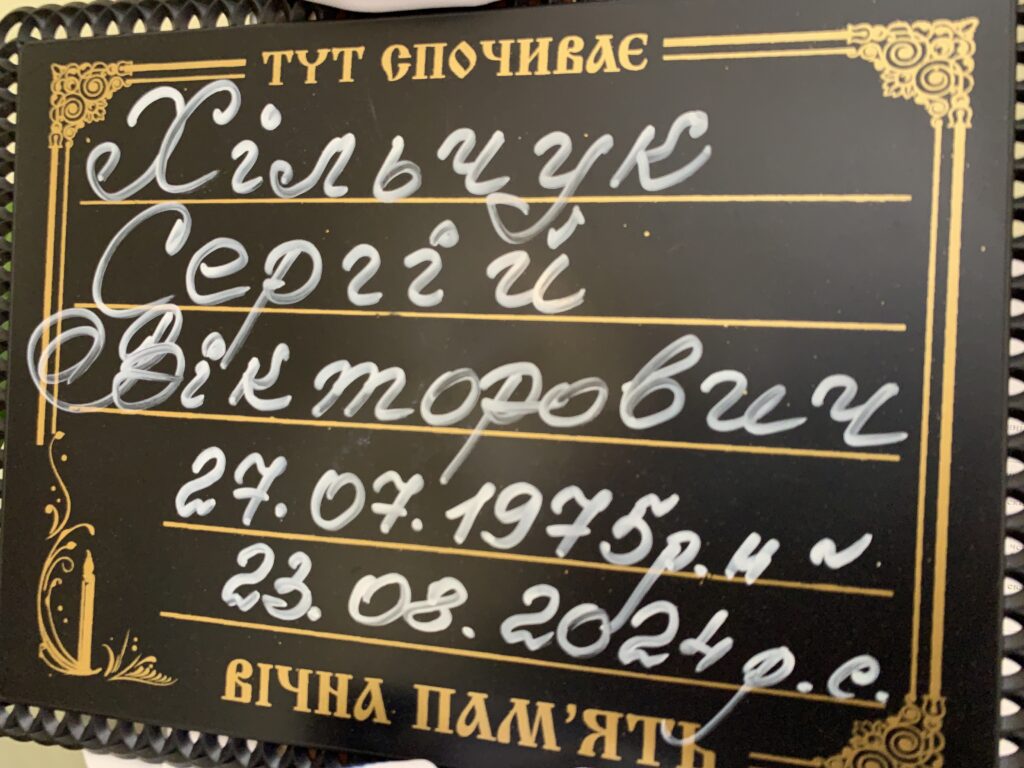 ТУТ СПОЧИВАЄ
Хільчук
Сергій
Вікторович
27.07.1975р.н ~
23.08.2024р.с.
ВІЧНА ПАМ'ЯТЬ